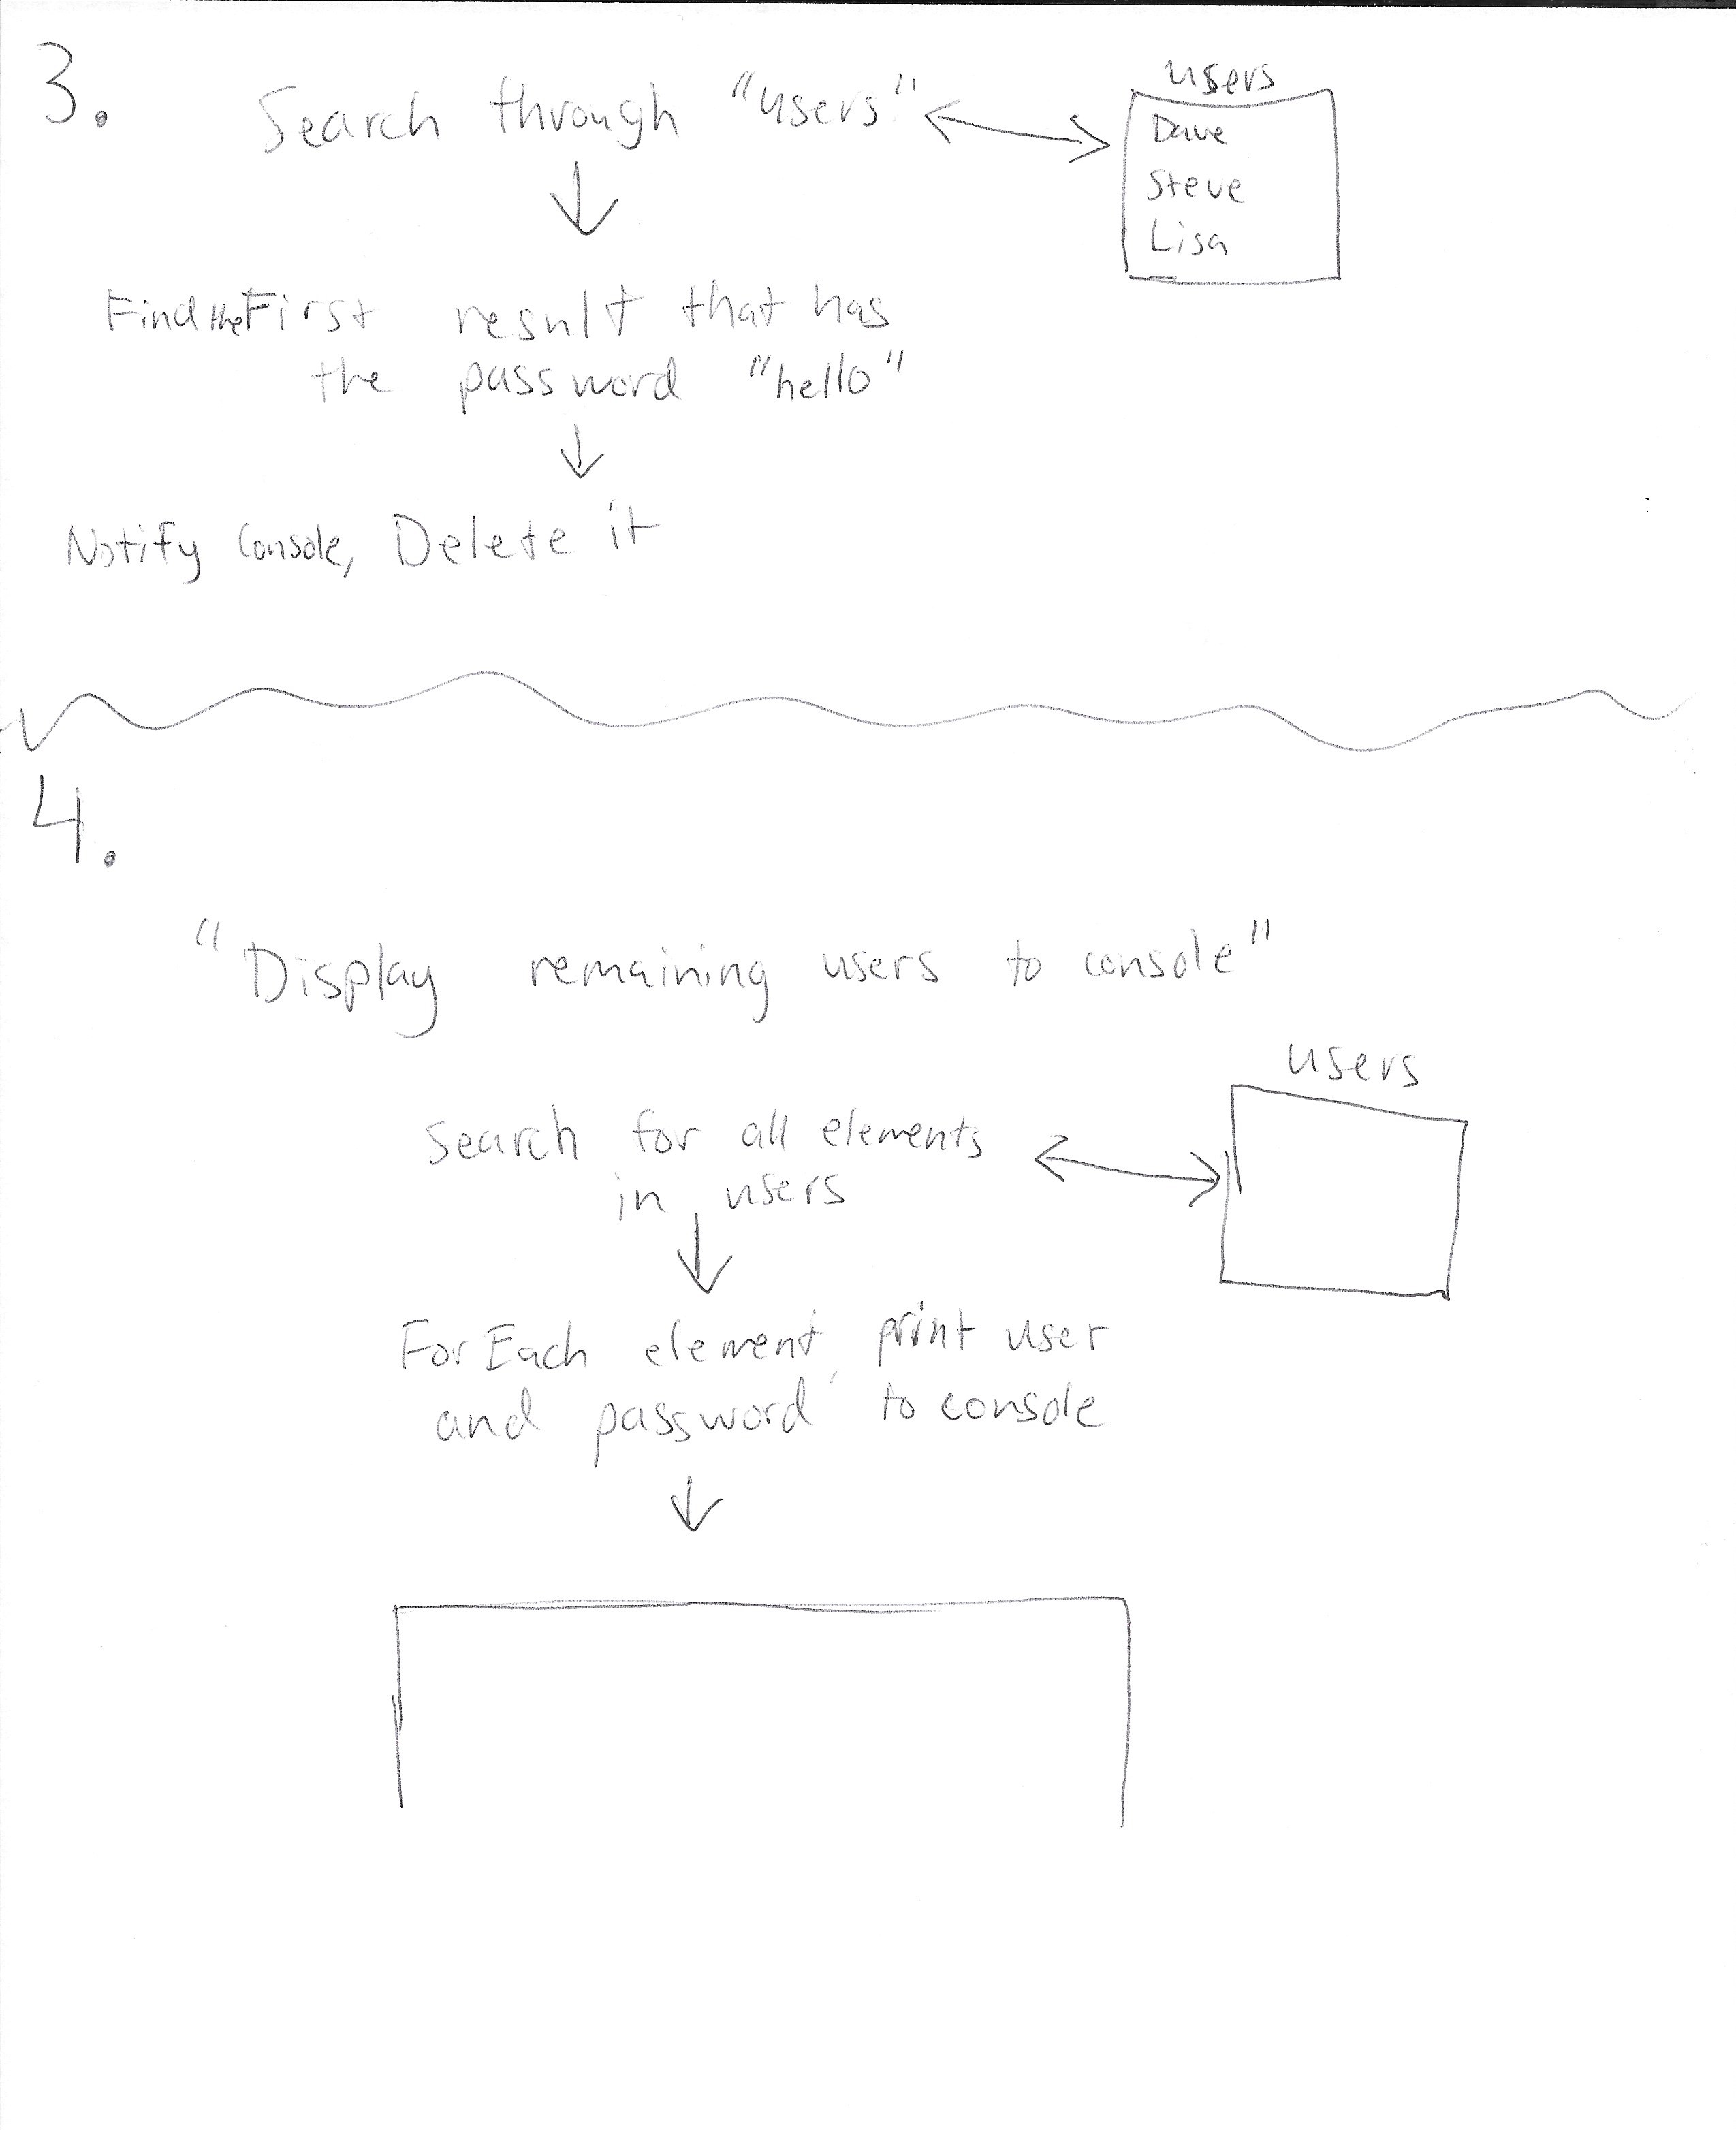 3.
Search through "users"
users
Dave
Steve
Lisa
Find the First result that has
the password "hello"
Notify Console, Delete it
4.
"Display remaining users to console"
users
Search for all elements
in users
For Each element, print user
and password to console